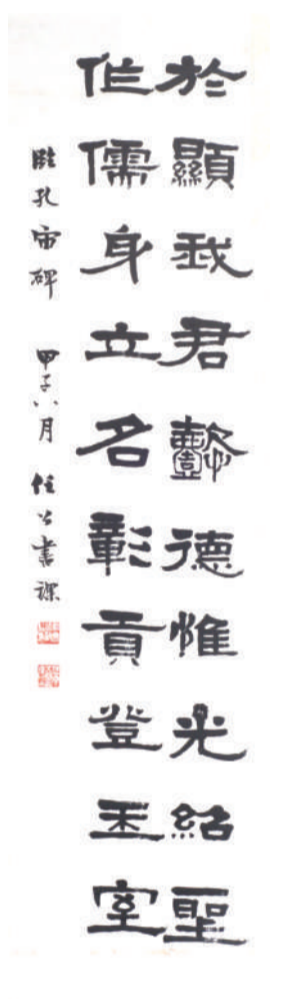 於顯我君懿德惟光紹聖
作儒身立名彰貢登王室
臨孔宙碑 甲子八月 任公書課